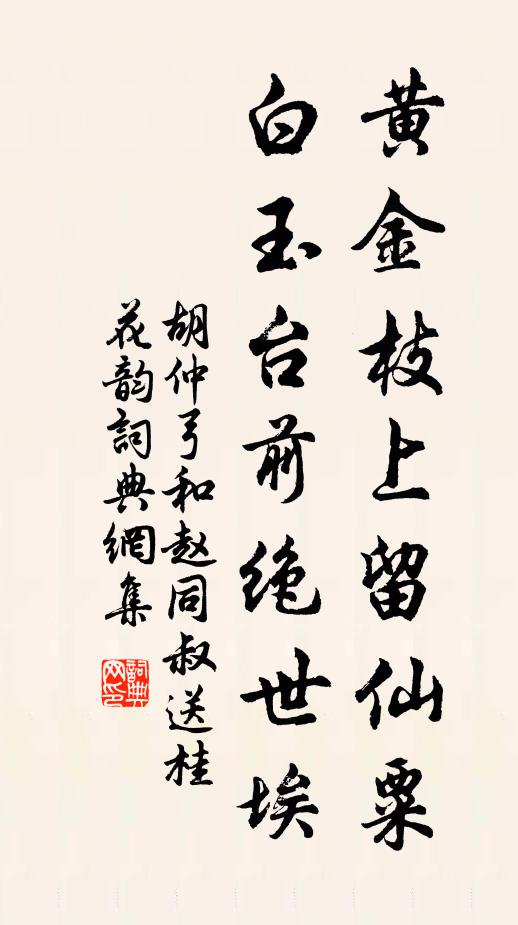 黄金枝上留仙粟
白玉台前绝世埃
胡仲弓和赵同叔送桂
花韵詞典網集
詞典网印